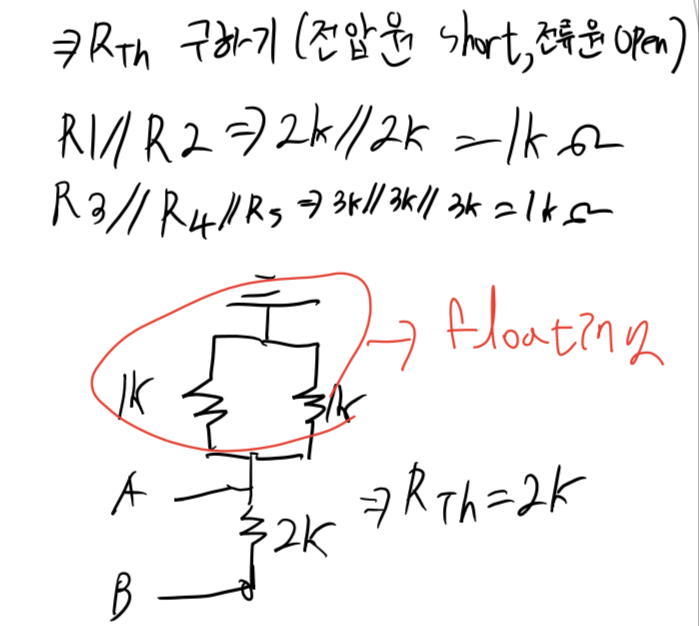 ⇒ RTh 구하기 (전압원 short, 전류원 open)
R1//R2 ⇒ 2k//2k = 1k Ω
R3//R4//R5 ⇒ 3k//3k//3k = 1k Ω
→ floating
1K 1k
A
⇒ RTh = 2k
2K
B